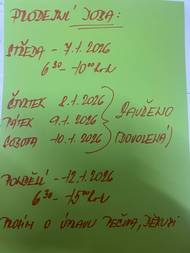 PRODEJNÍ DOBA:
STŘEDA - 7.1.2026
6³⁰ - 10⁰⁰ hod
ČTVRTEK 8.1.2026
PÁTEK 9.1.2026 ZAVŘENO
SOBOTA - 10.1.2026 (DOVOLENÁ)
PONDĚLÍ - 12.1.2026
6³⁰ - 15⁰⁰ hod
PROSÍM O ÚPRAVU PEČIVA, DĚKUJI